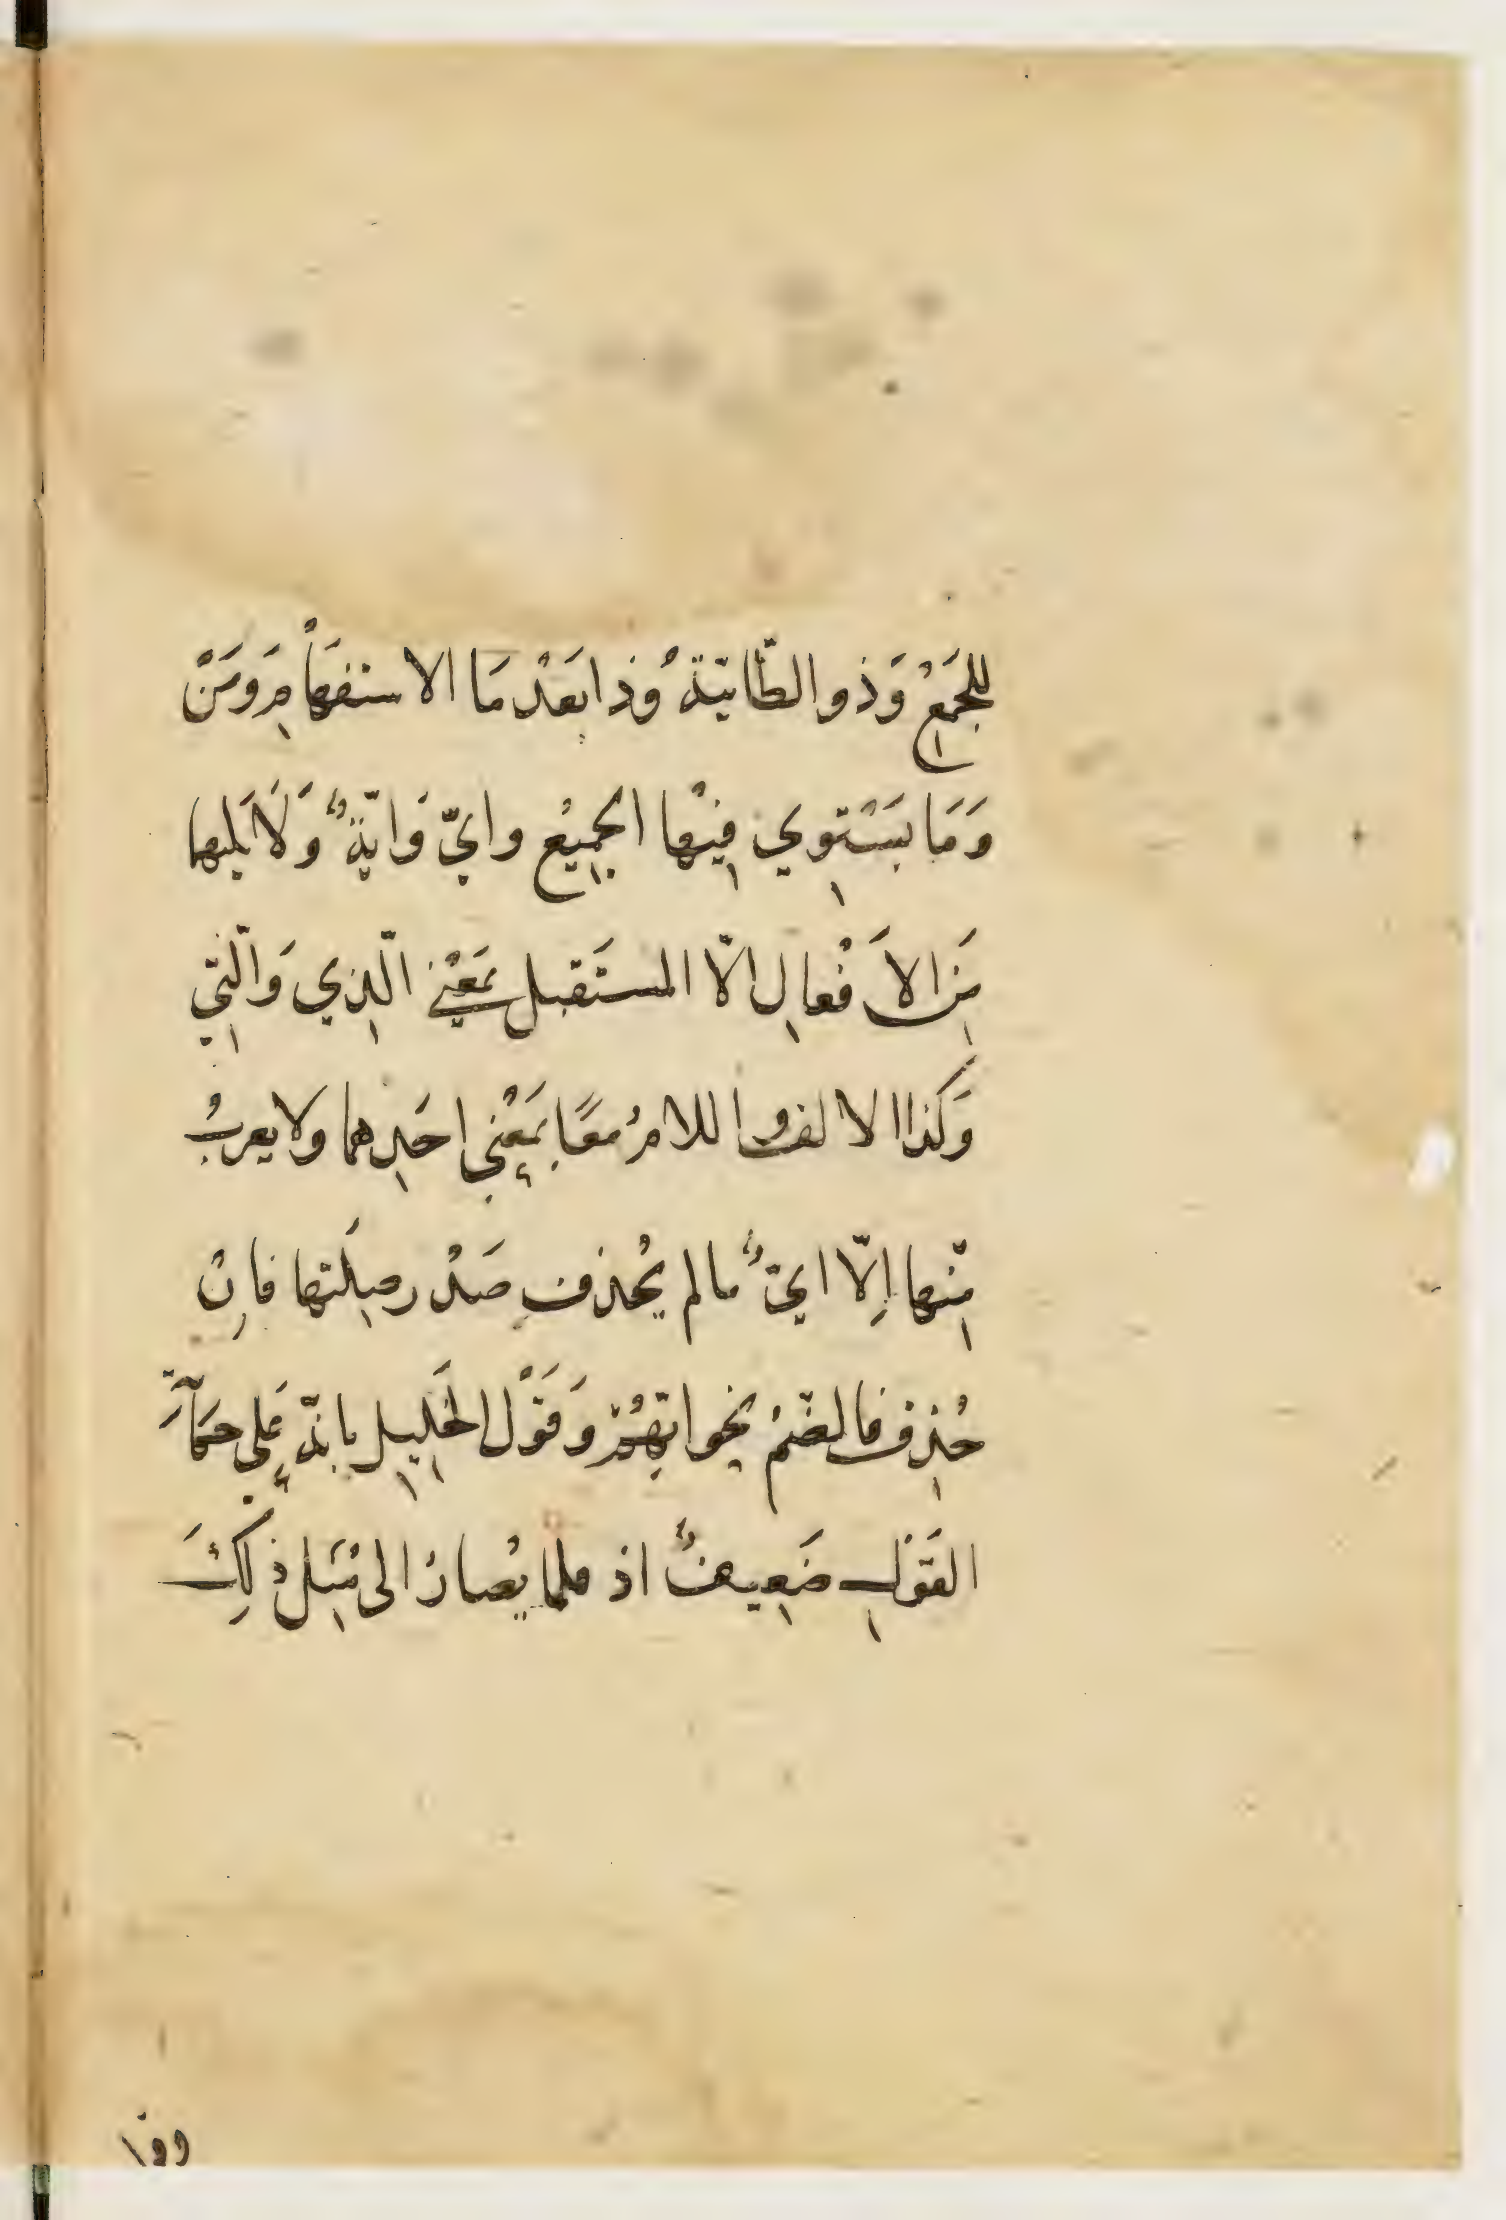 للجَمْعِ وَذو الطَّائيَّةُ وُذا بَعْدَ مَا الاستفهَاْمِ وَمَنْ
وَمَا يَسْتَوِي فِيْها الجمِيْعُ وايّ وَايّةٌ وَلَا يَليهما
مِنَ الاَفْعالِ الّا المستَقبل بمَعْنى الّذِي وَالّتِي
وَكَذا الالف واللامُ معًا بمَعْنِى احَدِهما ولا يعربُ
مِنْها إلّا ايٌّ مالم يُحذف صَدْر صِلَتها فانْ
حُذِف فالضّمُ نحو ايّهُمْ وَقَوْل الخَلِيلِ بانّه عَلى حكَايَة
القَوْلِ ضَعِيفٌ اذ قلما يُصارُ الى مِثلِ ذلِكَ
وقا